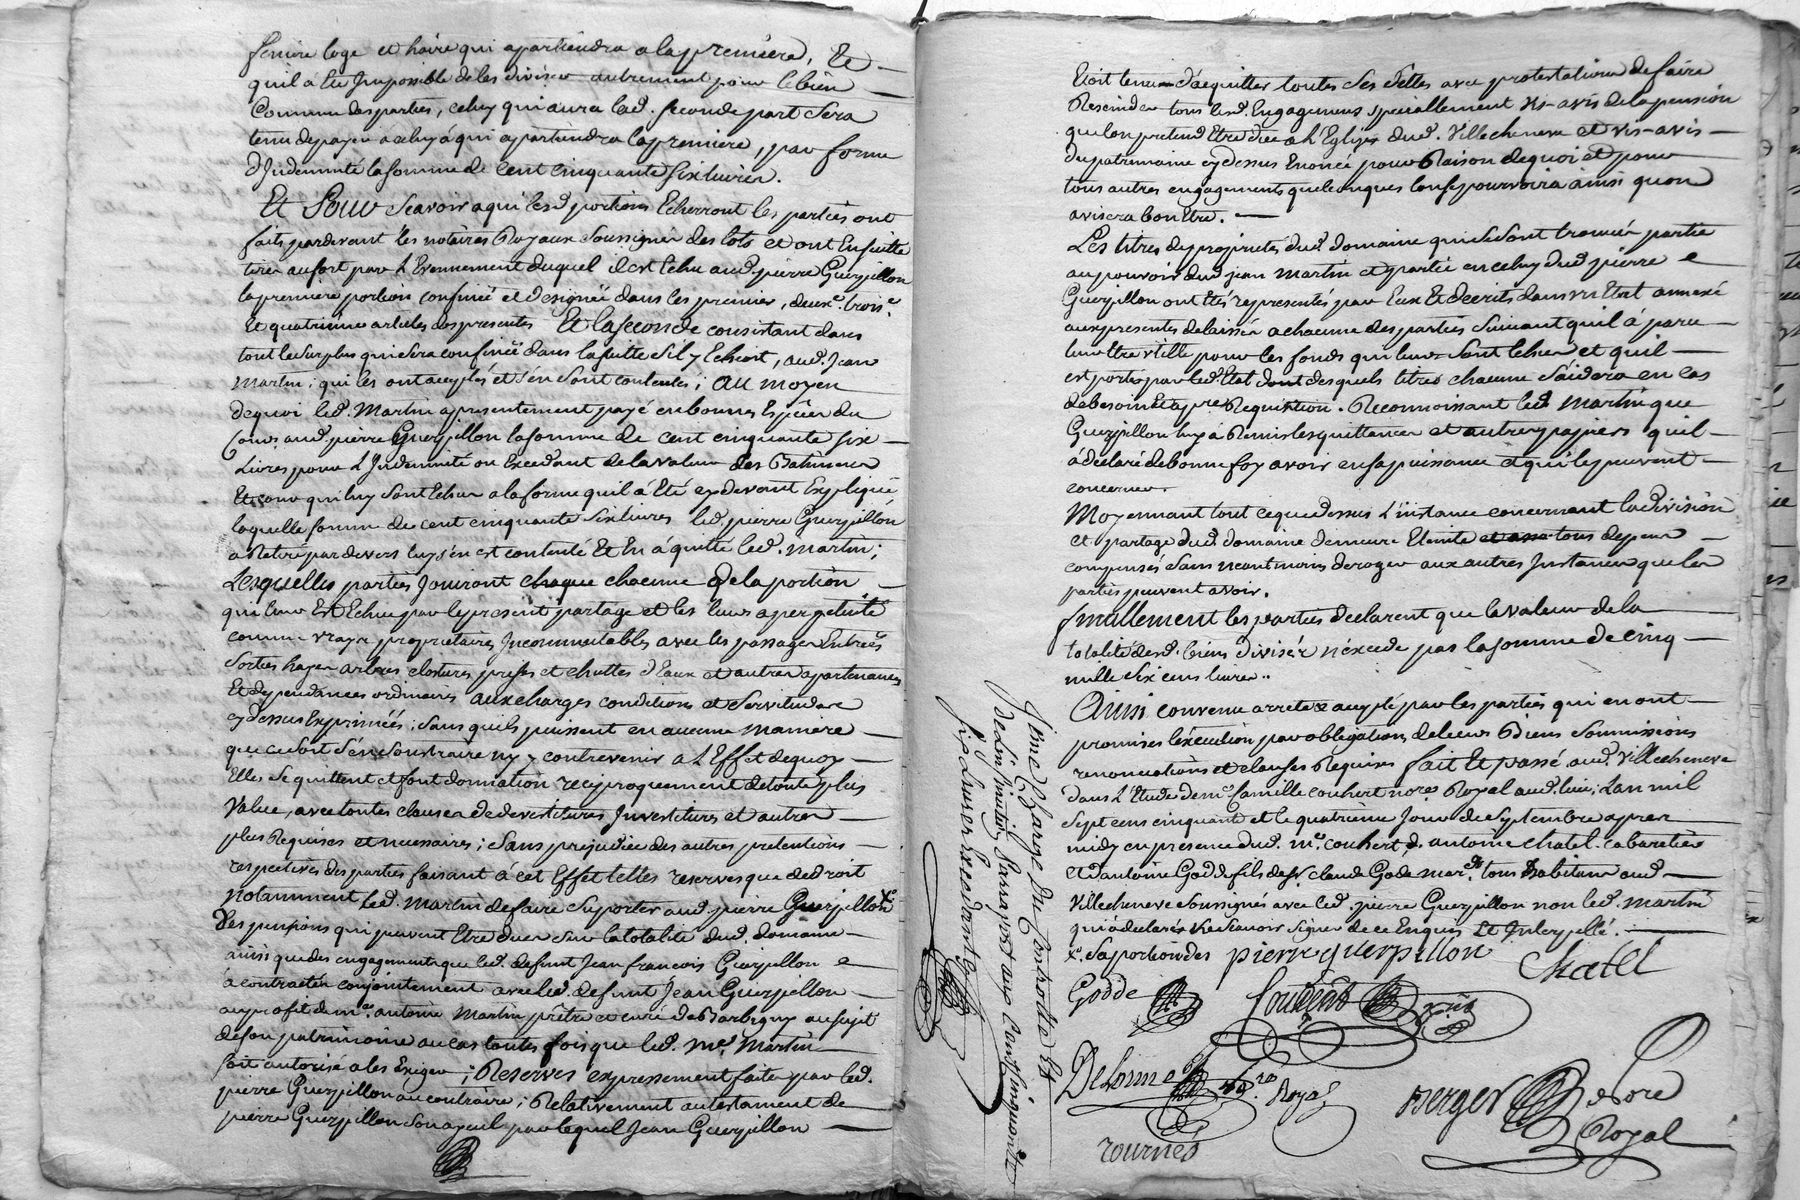 feniere loge et haire qui apartiendra a la premiere, Et
quil a Eté Impossible de les diviser autrement pour le bien
Commun des parties, celuy qui aura lad. seconde part sera
tenu de payer a celuy à qui apartiendra la premiere, par forme
d'Indemnité la somme de cent cinquante six livres.
Et Pour scavoir a qui lesd. portions Echerront les parties ont
faits pardevant les notaires Royaux soussignés des lots et ont Ensuitte
tirer au sort par l'Evennement duquel il est Echu aud. pierre Guerpillon
la premiere portion confinée et designée dans les premier, deuxe. trois.e
Et quatrieme articles des presentes Et la seconde consistant dans
tout le surplus qui sera confinée dans la suitte s'il y Echoit, aud. Jean
Martin; qui les ont acceptés et s'en sont contentés; au moyen
de quoi led. Martin a presentement payé en bonnes Espéces du
Cours aud. pierre Guerpillon la somme de cent cinquante six
Livres pour l'Indemnité ou Excedant de la valeur des Batimens
Et cour qui luy sont Echus a la forme quil a Eté cy devant Expliqué
laquelle somme de cent cinquante six livres led. pierre Guerpillon
a Retiré pardevers luy s'en est contenté Et En a quitté led. Martin;
Lesquelles parties Jouiront chaque chacune de la portion
qui leur Est Echue par le present partage et les leurs a perpetuité
comme vrays proprietaires Incommutables avec les passages Entrées
sorties hayes arbres clostures prises et chuttes d'Eaux et autres apartenances
Et dependances ordinaires aux charges conditions et servitudes
cy dessus Exprimées; sans quils puissent en aucune maniere
que ce soit s'en soustraire ny y contrevenir a L'Effet de quoy
Elles se quittent et font donnation reciproquement de toute plus
value, avec toutes clauses de devestitures Investitures et autres
plus Requises et necessaires; sans prejudice des autres pretentions
respectives des parties faisant à cet Effet telles reserves que de droit
notamment led. Martin de faire suporter aud. pierre Guerpillon X.
Des pensions qui peuvent Etre dues sur la totalité dud. domaine
ainsi que des engagements que led. defunt Jean francois Guerpillon
à contractés conjointement avec led. defunt Jean Guerpillon
au profit de me. antoine Martin prêtre et curé de Barbigny au sujet
de son patrimoine au cas toutes fois que led. me. Martin
soit autorisé a les Exiger; Reserves expressement faites par led.
pierre Guerpillon au contraire; Relativement au testament de
pierre Guerpillon son ayeul par lequel Jean Guerpillon
Etoit tenu d'acquitter toutes ses dettes avec protestation de faire
Rescinder tous lesd. Engagemens specialement vis-avis de la pension
que l'on pretend Etre due a l'Eglise dud. Villecheneve et vis-avis
du patrimoine cy dessus Enoncé pour Raison de quoi et pour
tous autres engagements quelconques l'on se pourvoira ainsi quon
avisera bon Etre.
Les titres de proprietés dud. domaine qui se sont trouvés partie
au pouvoir dud. jean Martin et partie en celuy dud. pierre
Guerpillon ont Eté representés par Eux Et decrits dans un Etat annexé
aux presentes delaissés a chacune des parties suivant quil à paru
leur Etre utille pour les fonds qui leur sont Echus et quil
est porté par led. Etat dont desquels titres chacune s'aidera en cas
de besoin Et a premre Requisition. Reconnoissant led. Martin que
Guerpillon luy à Remis les quittances et autres papiers quil
à déclaré de bonne foy avoir en sa puissance et qui le peuvent
concerner.
Moyennant tout ce que dessus L'instance concernant la division
et partage dud. domaine demeure Eteinte et asso tous depens
compensés sans neantmoins deroger aux autres Instances que les
parties peuvent avoir.
finallement les parties declarent que la valeur de la
totalité desd. biens divisés n'excede pas la somme de cinq
mille six cens livres..
Ainsi convenu arreté & accepté par les parties qui en ont
promises l'execution par obligation de leurs Biens soumissions
renonciations et clauses Requises fait Et passé aud. Villecheneve
dans L'Etude de me. Camille couhert nore. Royal aud. lieu; L'an mil
sept cens cinquante et le quatrième jour de septembre apres
midy en presence dud. me. couhert & antoine chatel cabaretier
et d'antoine Godde fils de sr. claude Gode mar.d tous habitans aud.
Villecheneve soussignés avec led. pierre Guerpillon non led. Martin
qui a declaré ne scavoir signer de ce Enquis Et Interpellé.
X. sa portion des pierre guerpillon
Chatel
Godde
Couhert
Delorme
no.re Royal
Berger
Royal
Tournés